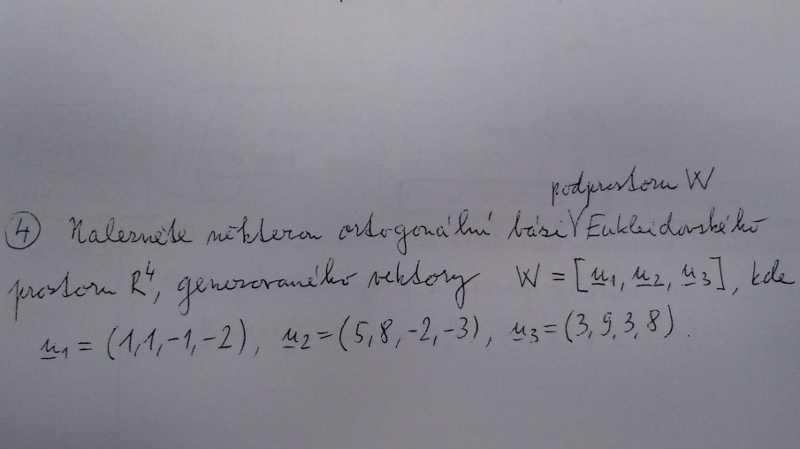 podprostoru W
④ Nalezněte některou ortogonální bázi V Eukleidovského
prostoru R⁴, generovaného vektory W = [u₁, u₂, u₃], kde
u₁ = (1,1,-1,-2), u₂ = (5,8,-2,-3), u₃ = (3,9,3,8).